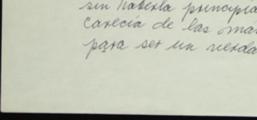 sin haberla principia
carecía de las
para ser un verda